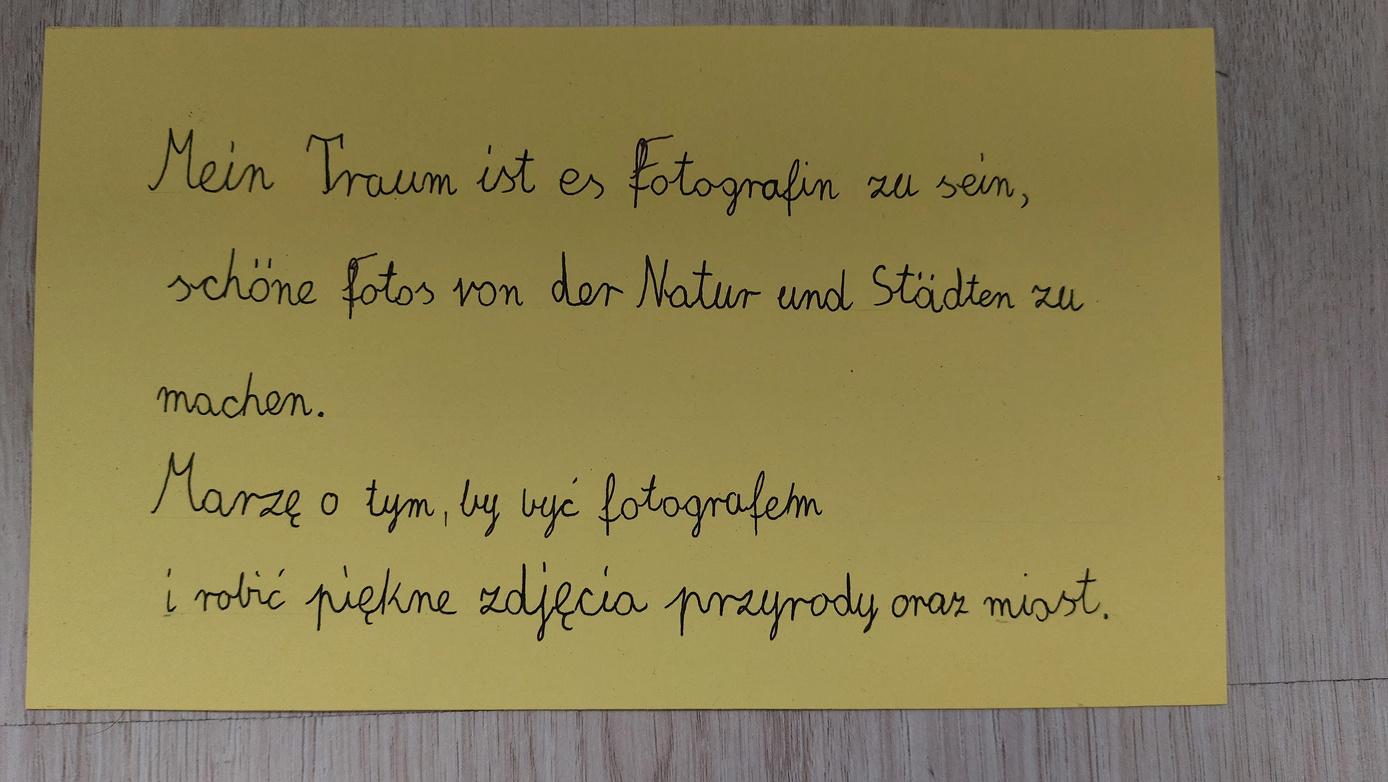 Mein Traum ist es Fotografin zu sein,
schöne Fotos von der Natur und Städten zu
machen.
Marzę o tym, by być fotografem
i robić piękne zdjęcia przyrody oraz miast.